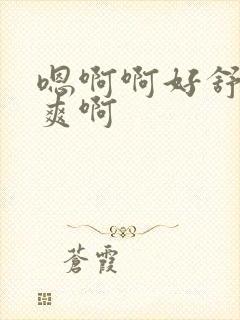 嗯啊啊好舒
爽啊
蒼霞